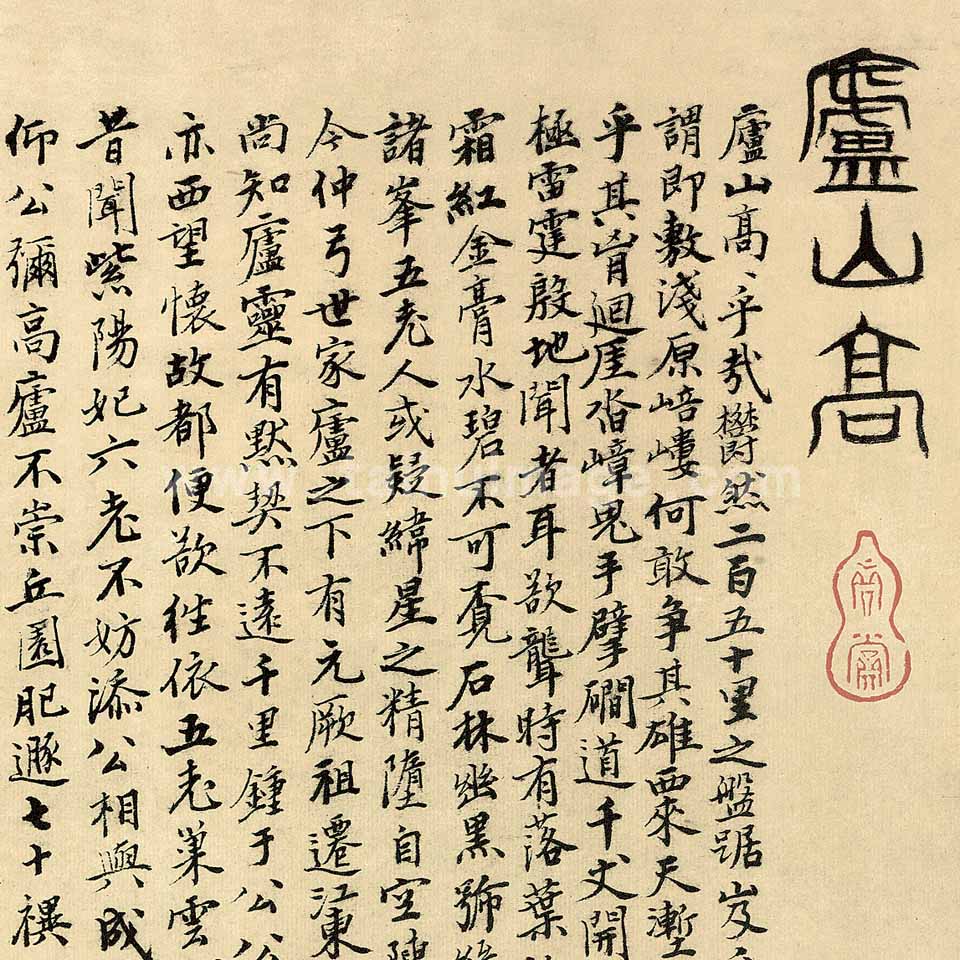 廬山高
廬山高〻乎哉欝然二百五十里之盤踞岌
謂即敷淺原㟝嶁何敢爭其雄西來天塹
乎其脊迴厓沓嶂鬼手擘磵道千丈開
極雷霆殷地聞者耳欲聾時有落葉
霜紅金膏水碧不可覓石林幽黑號
諸峯五老人或疑緯星之精墮自空陳
今仲弓世家廬之下有元厥祖遷江東
尚知廬靈有默契不遠千里鍾于公公
亦西望懷故都便欲往依五老巢雲
昔聞紫陽妃六老不妨添公相與成
仰公彌高廬不崇丘園肥遯七十禩